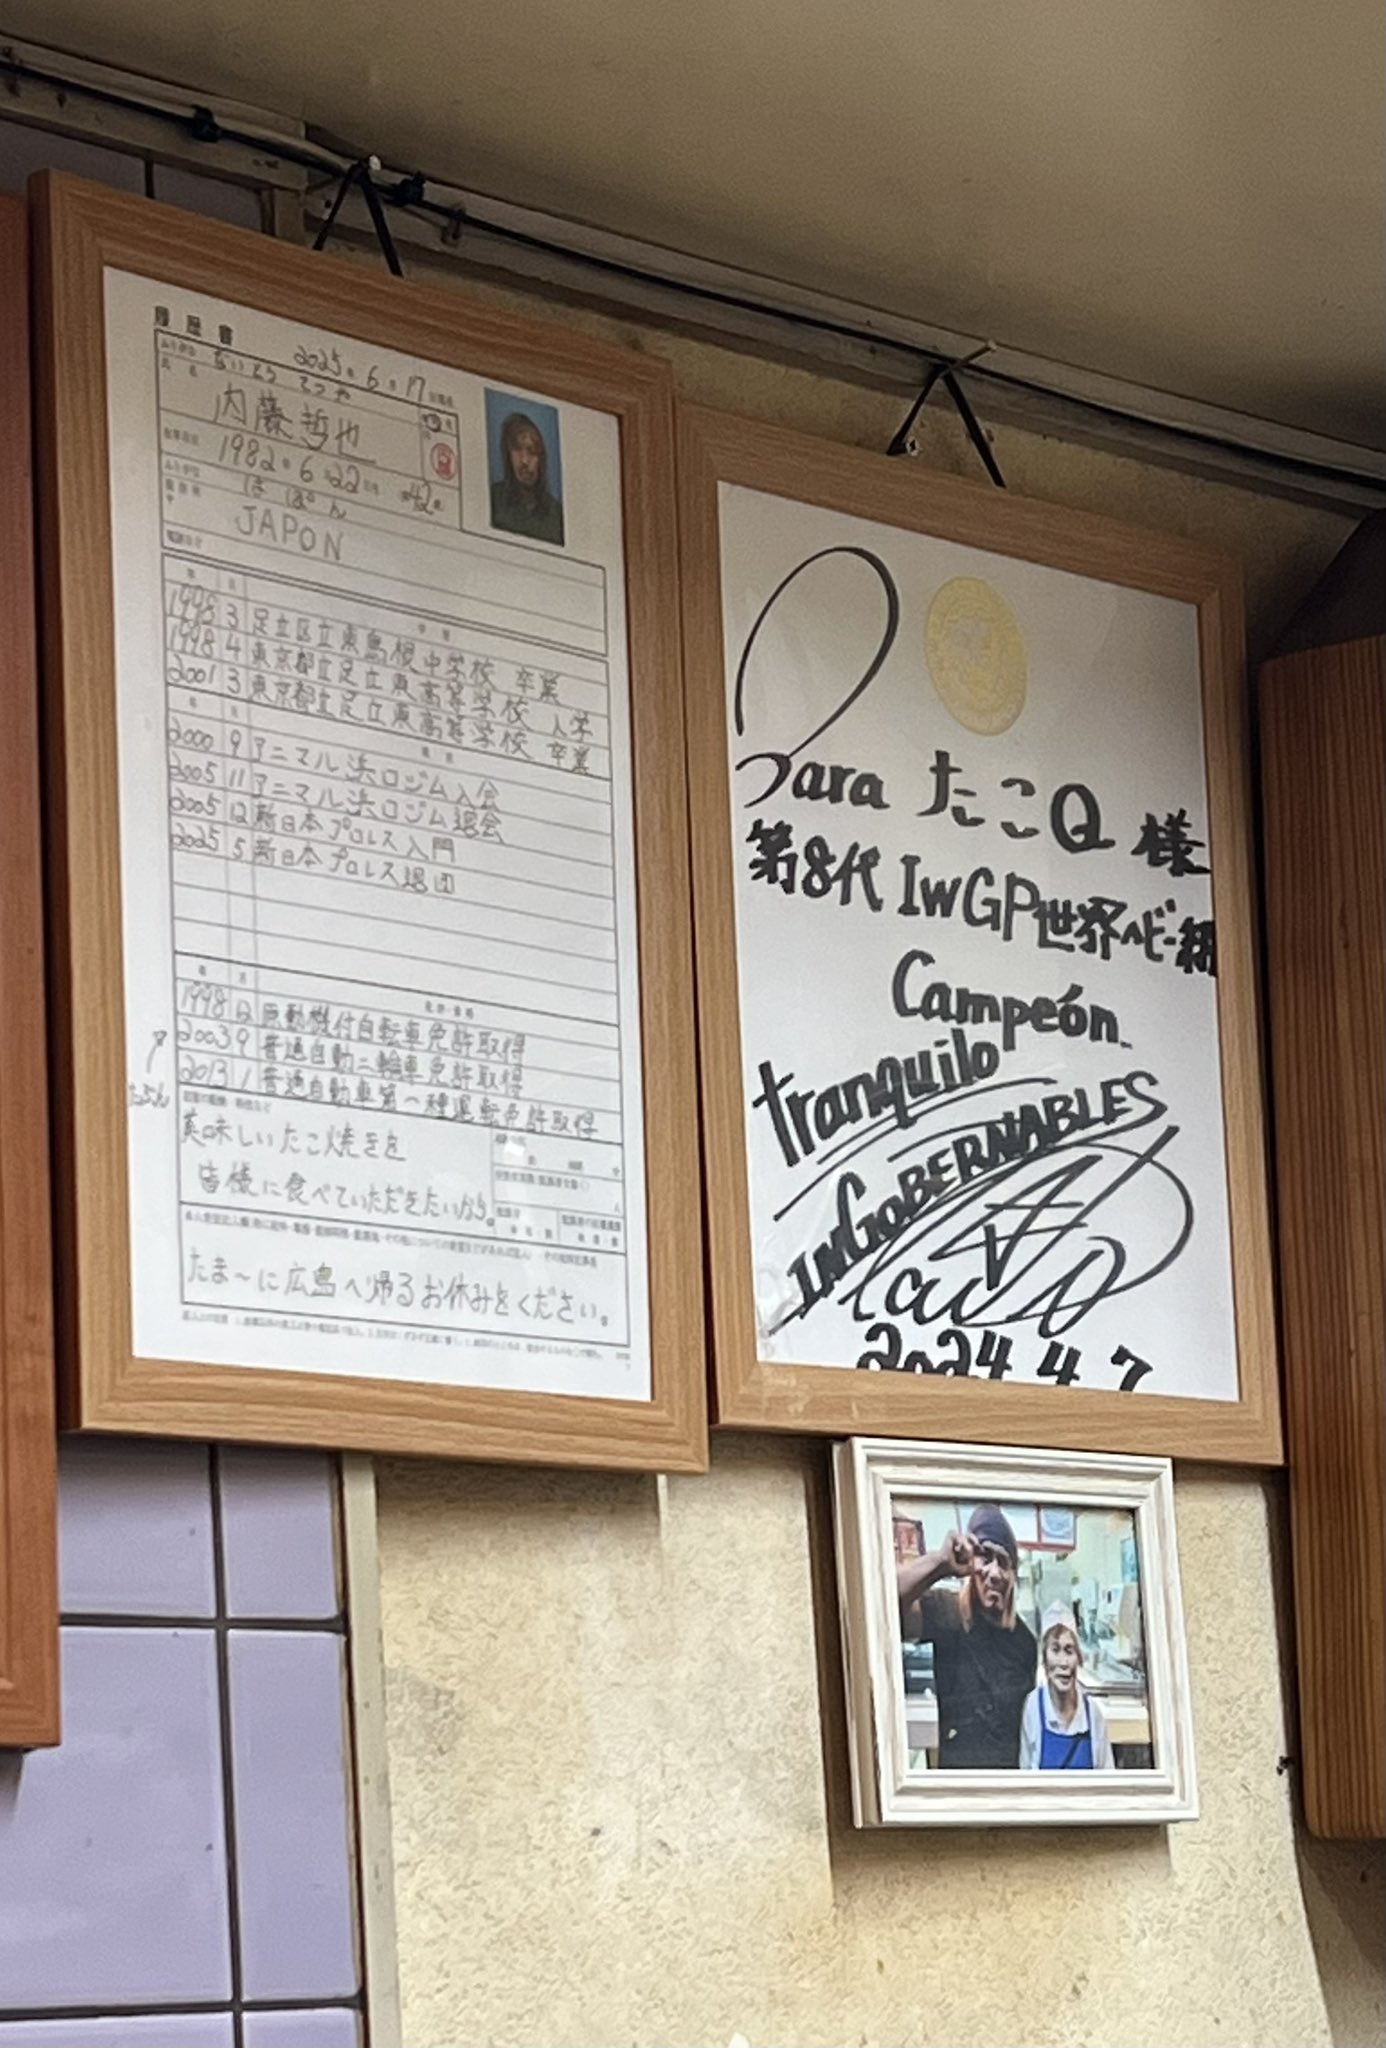 履歴書 2025年 6月 17日現在
ふりがな ないとう てつや
氏 名 内藤哲也
生年月日 1982年 6月22日生 満42歳
ふりがな はぽん
現住所 〒 JAPON
年 月 学歴
1998 3 足立区立東島根中学校 卒業
1998 4 東京都立足立東高等学校 入学
2001 3 東京都立足立東高等学校 卒業
年 月 職歴
2000 9 アニマル浜口ジム入会
2005 11 アニマル浜口ジム退会
2005 12 新日本プロレス入門
2025 5 新日本プロレス退団
年 月 免許・資格
1998 12 原動機付自転車免許取得
2003 9 普通自動二輪車免許取得
2013 1 普通自動車第一種運転免許取得
たぶん
美味しいたこ焼きを
皆様に食べていただきたいから。
たま〜に広島へ帰るお休みをください。
Para たこQ 様
第8代 IWGP世界ヘビー級
Campeón
tranquilo
INGOBERNABLES
2024.4.7